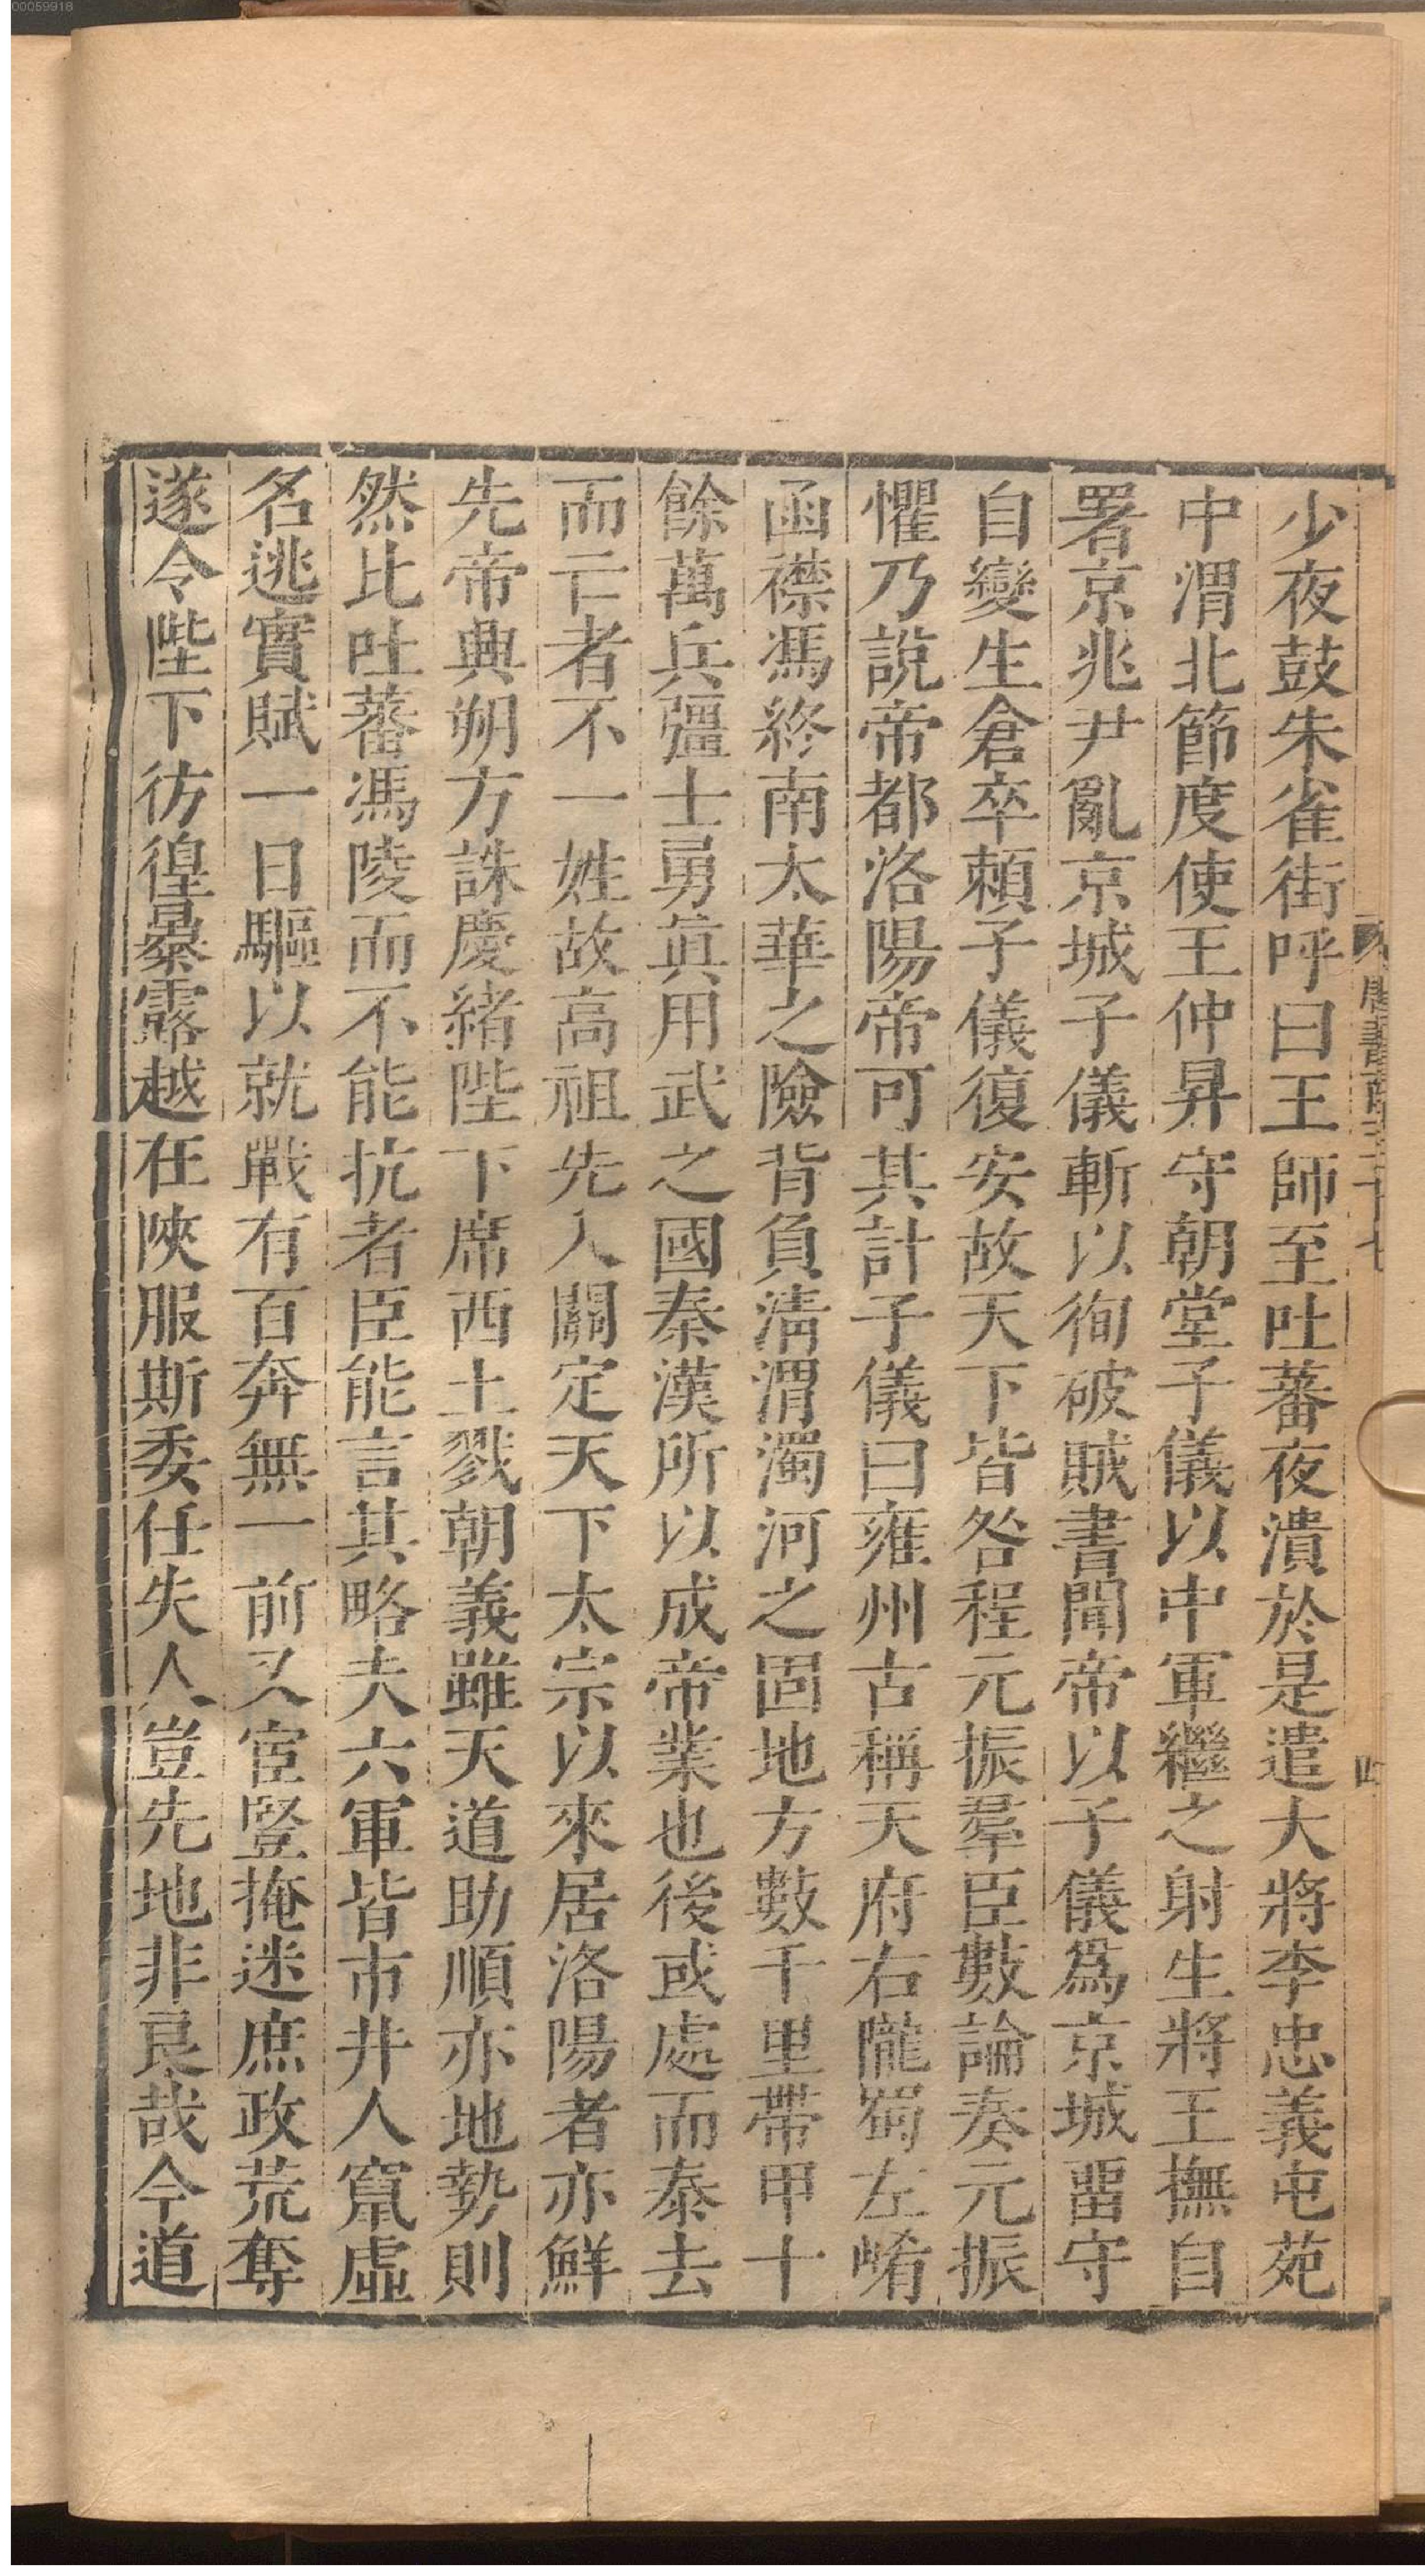 00059918
少夜鼓朱雀街呼曰王師至吐蕃夜潰於是遣大將李忠義屯苑
中渭北節度使王仲昇守朝堂子儀以中軍繼之射生將王撫自
署京兆尹亂京城子儀斬以徇破賊書聞帝以子儀爲京城畱守
自變生倉卒賴子儀復安故天下皆咎程元振羣臣數論奏元振
懼乃說帝都洛陽帝可其計子儀曰雍州古稱天府右隴蜀左崤
函襟馮終南太華之險背負淸渭濁河之固地方數千里帶甲十
餘萬兵彊士勇眞用武之國秦漢所以成帝業也後或處而泰去
而亡者不一姓故高祖先入關定天下太宗以來居洛陽者亦鮮
先帝興朔方誅慶緒陛下席西土戮朝義雖天道助順亦地勢則
然比吐蕃馮陵而不能抗者臣能言其略夫六軍皆市井人竄虛
名逃實賦一日驅以就戰有百奔無一前又宦豎掩迷庶政荒奪
遂令陛下彷徨暴露越在陝服斯委任失人豈先地非良哉今道